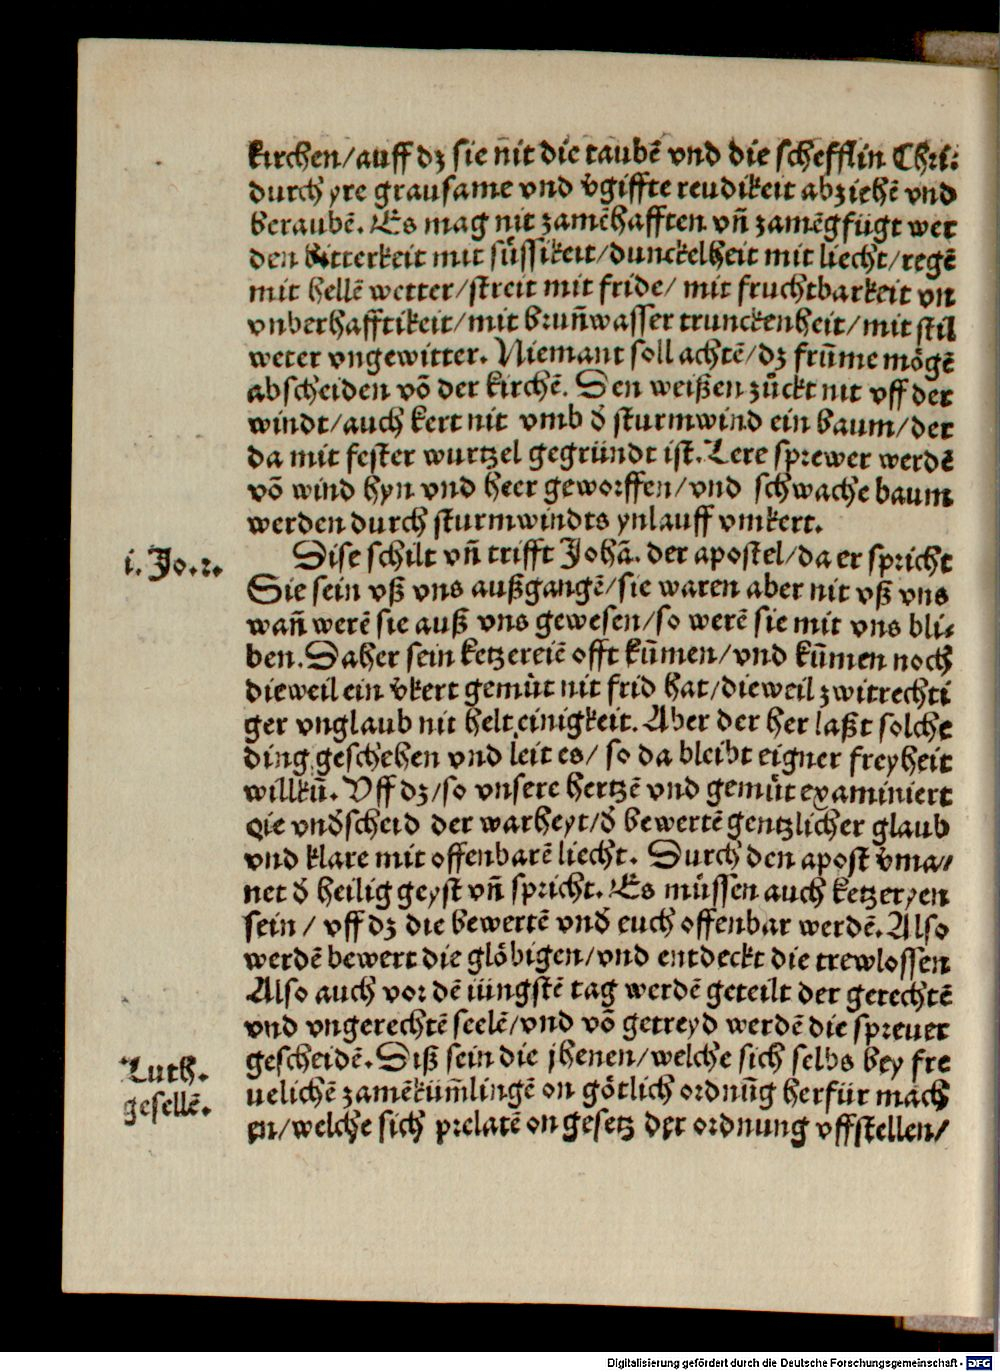 kirchen/auff dz sie nit die taubē vnd die schefflin Chri:
durch yre grausame vnd v̄giffte reudikeit abziehē vnd
beraubē. Es mag nit zamēhafften vn̄ zamēgfügt wer
den bitterkeit mit süssikeit/dunckelheit mit liecht/regē
mit hellē wetter/streit mit fride/ mit fruchtbarkeit vn
vnberhafftikeit/mit brun̄wasser trunckenheit/mit stil
weter vngewitter. Niemant soll achtē/dz frūme mögē
abscheiden vō der kirchē. Den weißen zůckt nit vff der
windt/auch kert nit vmb d̄ sturmwind ein baum/der
da mit fester wurtzel gegründt ist. Lere sprewer werdē
vō wind hyn vnd heer geworffen/vnd schwache baum
werden durch sturmwindts ynlauff vmkert.
i. Jo. 2.
Dise schilt vn̄ trifft Johā. der apostel/da er spricht
Sie sein vß vns außgangē/sie waren aber nit vß vns
wan̄ werē sie auß vns gewesen/so werē sie mit vns bli-
ben. Daher sein ketzereiē offt kūmen/vnd kūmen noch
dieweil ein v̄kert gemüt nit frid hat/dieweil zwitrechti
ger vnglaub nit helt einigkeit. Aber der her laßt solche
ding geschehen vnd leit es/ so da bleibt eigner freyheit
willkū. Vff dz/so vnsere hertzē vnd gemüt examiniert
die vnd̄scheid der warheyt/d̄ bewertē gentzlicher glaub
vnd klare mit offenbarē liecht. Durch den apost v̄ma-
net d̄ heilig geyst vn̄ spricht. Es müssen auch ketzeryen
sein/ vff dz die bewertē vnd̄ euch offenbar werdē. Also
werdē bewert die glöbigen/vnd entdeckt die trewlossen
Also auch vor dē iüngstē tag werdē geteilt der gerechtē
vnd vngerechtē seelē/vnd vō getreyd werdē die spreuer
Luth.
gesellē.
gescheidē. Diß sein die jhenen/welche sich selbs bey fre
uelichē zamēkum̄lingē on götlich ordnūg herfür mach
en/welche sich prelatē on gesetz der ordnung vffstellen/
Digitalisierung gefördert durch die Deutsche Forschungsgemeinschaft - DFG